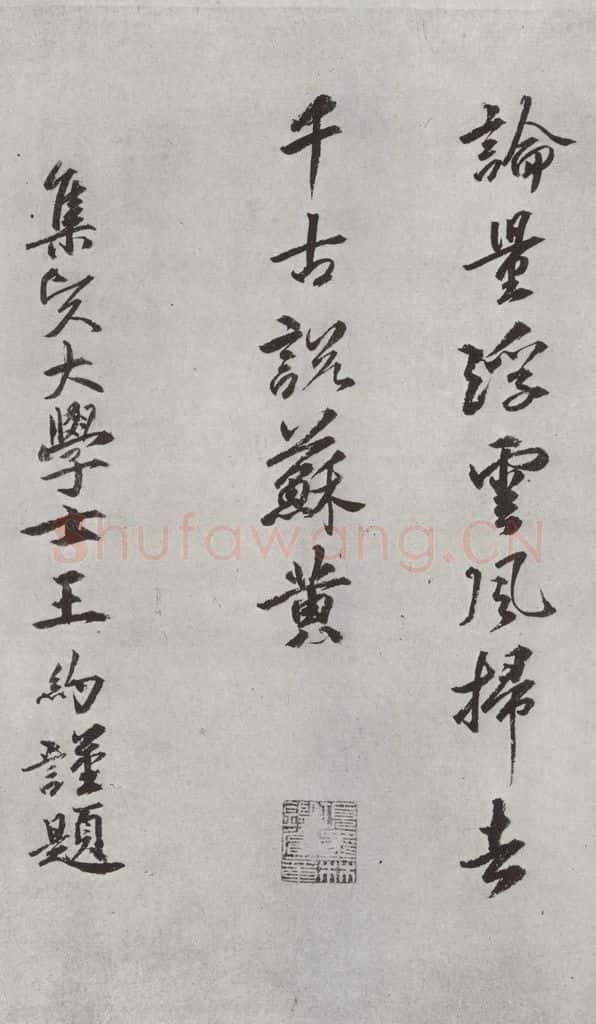 論量浮雲風掃去
千古說蘇黃
集賢大學士王約謹題
Shufawang.CN